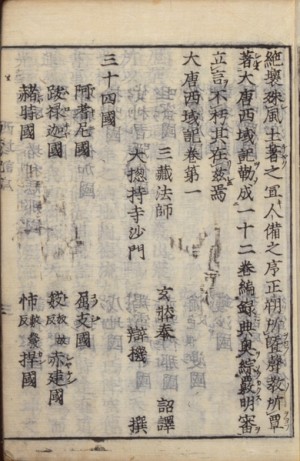 絶壤殊風土著之宜人備之序正朔所曁聲敎所覃
著大唐西域記勒成一十二卷編錄典奧綜覈明審
立言不朽其在茲焉
大唐西域記卷第一
三藏法師 玄奘奉 詔譯
大揔持寺沙門 辯機 撰
三十四國
阿耆尼國 屈支國
跋祿迦國 笯赤建國
赭時國 㤄捍國